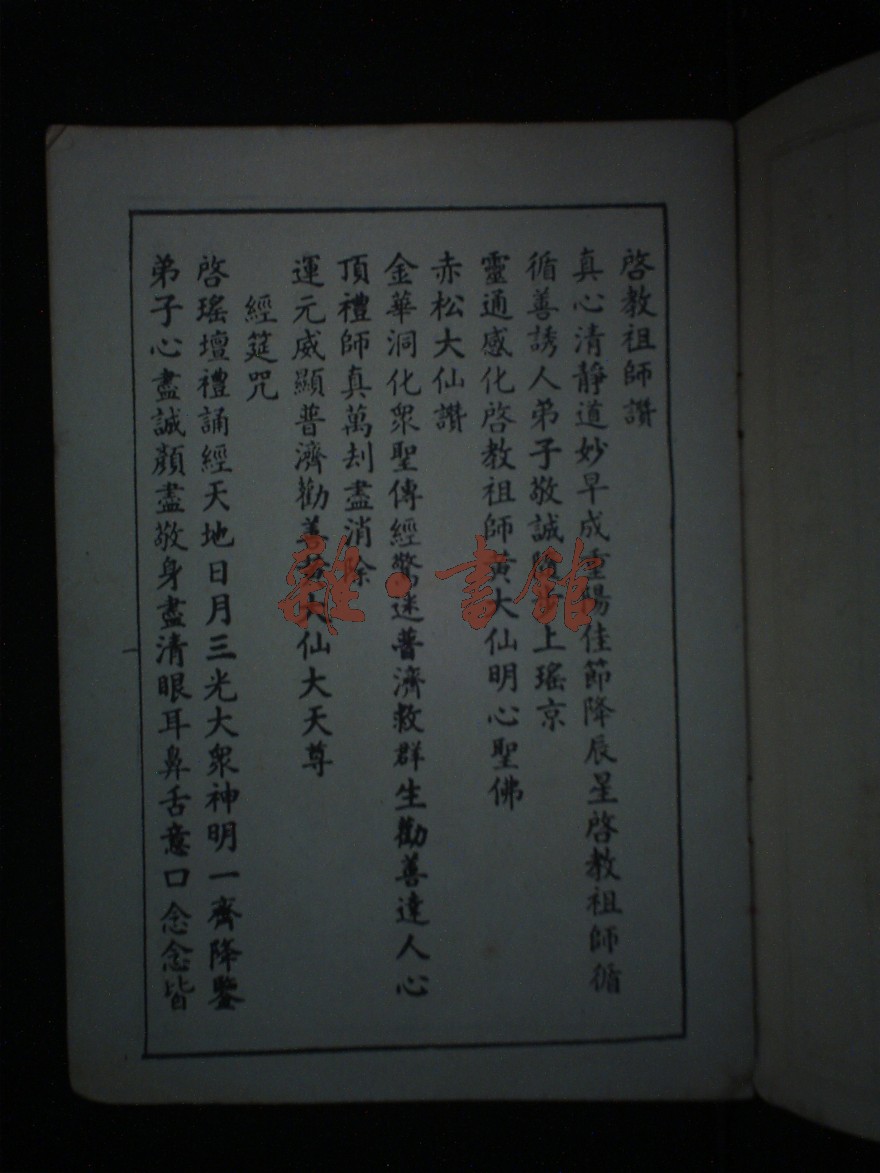 啓教祖師讚
真心清靜道妙早成重陽佳節降辰星啓教祖師循
循善誘人弟子敬誠 上瑤京
靈通感化啓教祖師黃大仙明心聖佛
赤松大仙讚
金華洞化衆聖傳經驚迷普濟救群生勸善達人心
頂禮師真萬刦盡消除
運元威顯普濟勸善 大仙大天尊
經筵咒
啓瑤壇禮誦經天地日月三光大衆神明一齊降鑒
弟子心盡誠顏盡敬身盡清眼耳鼻舌意口念念皆
雜·書館